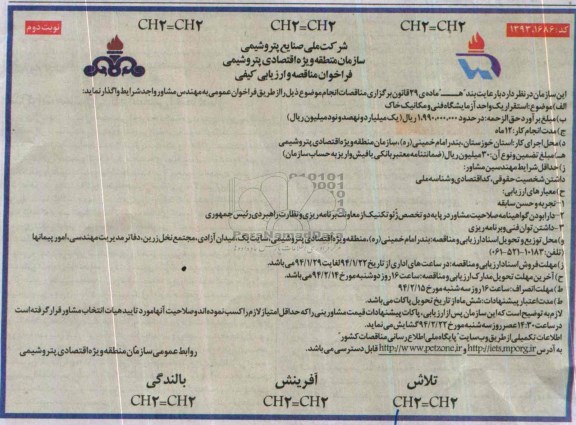 کد: ۱۳۹۳.۱۶۸۶
CH۲=CH۲
CH۲=CH۲
CH۲=CH۲
نوبت دوم
شرکت ملی صنایع پتروشیمی
سازمان منطقه ویژه اقتصادی پتروشیمی
فراخوان مناقصه و ارزیابی کیفی
این سازمان در نظر دارد با رعایت بند "هـ" ماده‌ی ۲۹ قانون برگزاری مناقصات انجام موضوع ذیل را از طریق فراخوان عمومی به مهندس مشاور واجد شرایط واگذار نماید:
الف) موضوع: استقرار یک واحد آزمایشگاه فنی و مکانیک خاک
ب) مبلغ برآورد حق الزحمه: در حدود ۱.۹۹۰.۰۰۰.۰۰۰ ریال (یک میلیارد و نهصد و نود میلیون ریال)
ج) مدت انجام کار: ۱۲ ماه
د) محل اجرای کار: استان خوزستان، بندر امام خمینی (ره)، سازمان منطقه ویژه اقتصادی پتروشیمی
هـ) مبلغ تضمین و نوع آن: ۳۰ میلیون ریال (ضمانتنامه معتبر بانکی یا فیش واریز به حساب سازمان)
ز) حداقل شرایط مهندسین مشاور:
داشتن شخصیت حقوقی، کد اقتصادی و شناسه ملی
ح) معیارهای ارزیابی:
۱- تجربه و حسن سابقه
۲- دارا بودن گواهینامه صلاحیت مشاور در پایه دو تخصص ژئوتکنیک از معاونت برنامه ریزی و نظارت راهبردی رئیس جمهوری
۳- داشتن توان فنی و برنامه ریزی
و) محل توزیع و تحویل اسناد ارزیابی و مناقصه: بندر امام خمینی (ره)، منطقه ویژه اقتصادی پتروشیمی، سایت یک، میدان آزادی، مجتمع نخل زرین، دفاتر مدیریت مهندسی، امور پیمانها
(تلفن: ۱۰۱۸۳-۰۶۱۵۲)
ز) مهلت فروش اسناد ارزیابی و مناقصه: در ساعت های اداری از تاریخ ۹۴/۱/۲۲ لغایت ۹۴/۱/۲۹ می‌باشد.
ح) آخرین مهلت تحویل مدارک ارزیابی و مناقصه: ساعت ۱۶ روز دوشنبه مورخ ۹۴/۲/۱۴ می‌باشد.
ط) مهلت انصراف: ساعت ۱۶ روز سه شنبه مورخ ۹۴/۲/۱۵
ظ) مدت اعتبار پیشنهادات: شش ماه از تاریخ تحویل پاکات می‌باشد.
لازم به توضیح است که این سازمان پس از ارزیابی، پاکات پیشنهادات قیمت مشاورینی را که حداقل امتیاز لازم را کسب نموده اند و صلاحیت آنها مورد تایید هیات انتخاب مشاور قرار گرفته است
در ساعت ۱۴:۳۰ عصر روز سه شنبه مورخ ۹۴/۲/۲۲ گشایش می نماید.
اطلاعات تکمیلی از طریق وب سایت "پایگاه ملی اطلاع رسانی مناقصات کشور"
به آدرس http://iets.mporg.ir و http://www.petzone.ir قابل دسترسی می‌باشد.
روابط عمومی سازمان منطقه ویژه اقتصادی پتروشیمی
تلاش
آفرینش
بالندگی
CH۲=CH۲
CH۲=CH۲
CH۲=CH۲